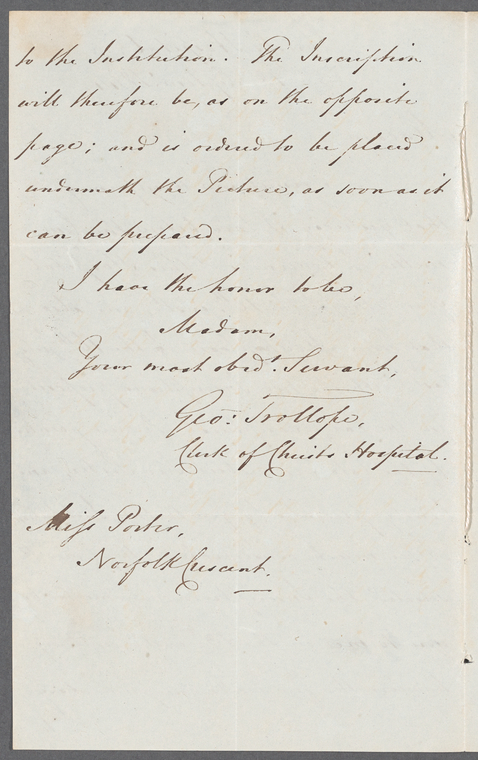 to the Institution. The Inscription
will therefore be, as on the opposite
page; and is ordered to be placed
underneath the Picture, as soon as it
can be prepared.
I have the honor to be,
Madam,
Your most obedt. Servant,
Geo: Trollope,
Clerk of Christs Hospital.
Miss Porter,
Norfolk Crescent.